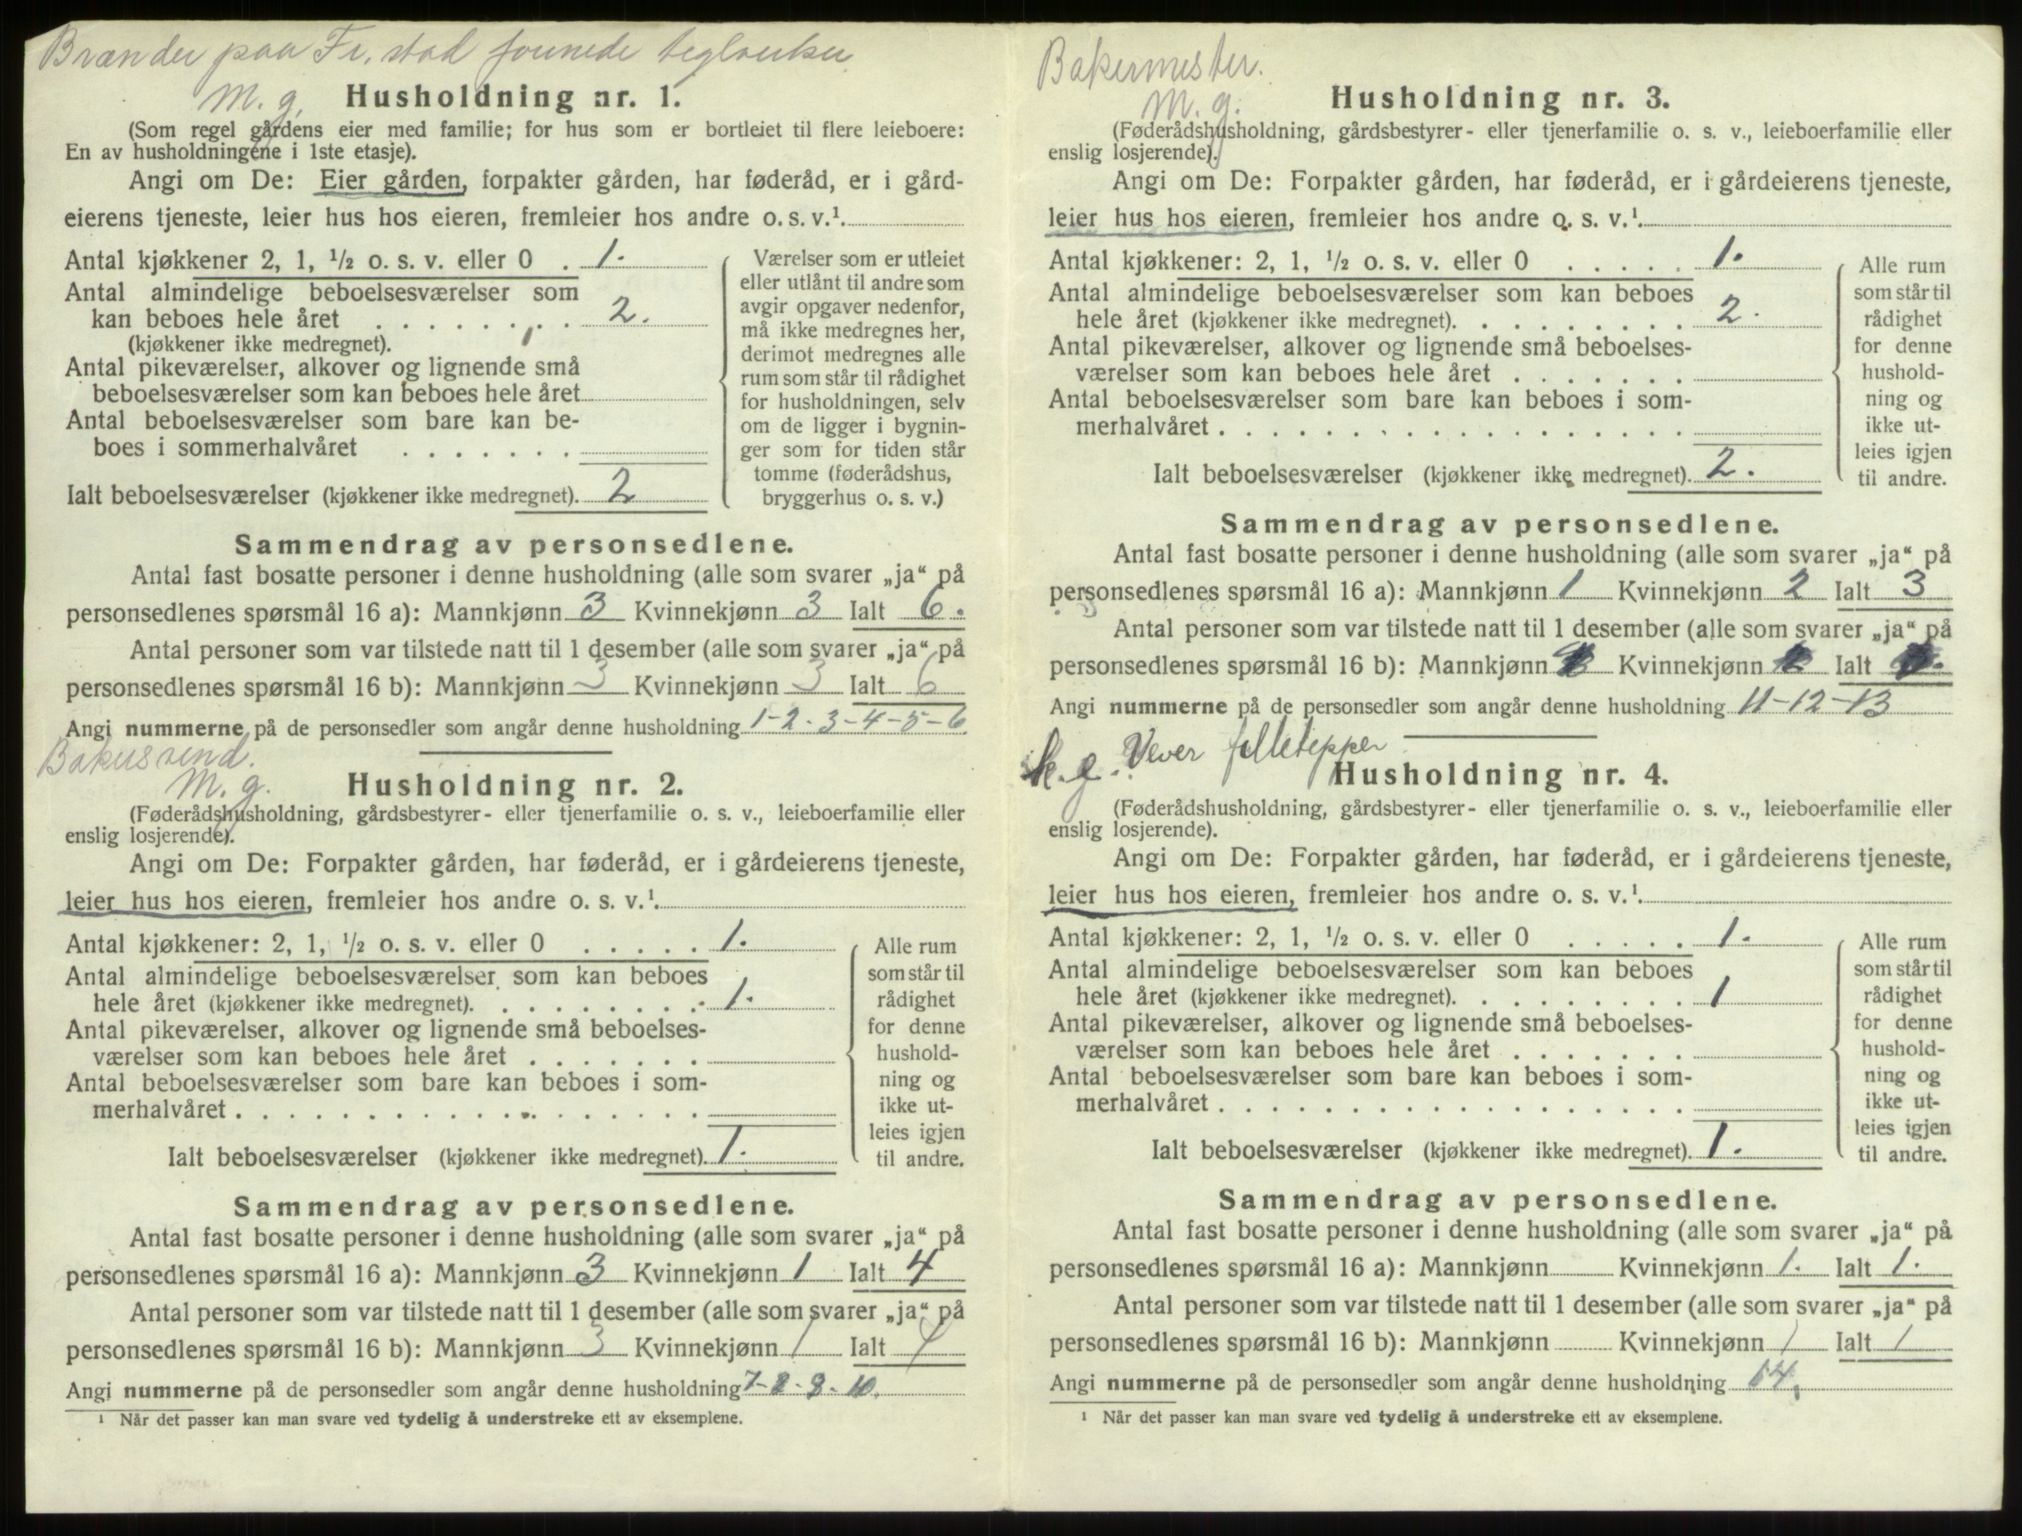 Brænder paa Fr.stad forenede teglverker
M. g.
Husholdning nr. 1.
(Som regel gårdens eier med familie; for hus som er bortleiet til flere leieboere:
En av husholdningene i 1ste etasje).
Angi om De: Eier gården, forpakter gården, har føderåd, er i gård-
eierens tjeneste, leier hus hos eieren, fremleier hos andre o. s. v.¹
Antal kjøkkener 2, 1, ½ o. s. v. eller 0 . 1.
Antal almindelige beboelsesværelser som
kan beboes hele året . . . . . . . . 2.
(kjøkkener ikke medregnet).
Antal pikeværelser, alkover og lignende små
beboelsesværelser som kan beboes hele året
Antal beboelsesværelser som bare kan be-
boes i sommerhalvåret . . . . . . .
Ialt beboelsesværelser (kjøkkener ikke medregnet). 2
Værelser som er utleiet
eller utlånt til andre som
avgir opgaver nedenfor,
må ikke medregnes her,
derimot medregnes alle
rum som står til rådighet
for husholdningen, selv
om de ligger i bygnin-
ger som for tiden står
tomme (føderådshus,
bryggerhus o. s. v.)
Sammendrag av personsedlene.
Antal fast bosatte personer i denne husholdning (alle som svarer „ja“ på
personsedlenes spørsmål 16 a): Mannkjønn 3 Kvinnekjønn 3 Ialt 6.
Antal personer som var tilstede natt til 1 desember (alle som svarer „ja“ på
personsedlenes spørsmål 16 b): Mannkjønn 3 Kvinnekjønn 3 Ialt 6
Angi nummerne på de personsedler som angår denne husholdning 1-2-3-4-5-6
Bakersvend.
M. g.
Husholdning nr. 2.
(Føderådshusholdning, gårdsbestyrer- eller tjenerfamilie o. s. v., leieboerfamilie eller
enslig losjerende).
Angi om De: Forpakter gården, har føderåd, er i gårdeierens tjeneste,
leier hus hos eieren, fremleier hos andre o. s. v.¹
Antal kjøkkener: 2, 1, ½ o. s. v. eller 0 . . . . . 1.
Antal almindelige beboelsesværelser som kan beboes
hele året (kjøkkener ikke medregnet). . . . . . . . . 1.
Antal pikeværelser, alkover og lignende små beboelses-
værelser som kan beboes hele året . . . . . . .
Antal beboelsesværelser som bare kan beboes i som-
merhalvåret . . . . . . . . . . . . . . . . .
Ialt beboelsesværelser (kjøkkener ikke medregnet). 1.
Alle rum
som står til
rådighet
for denne
hushold-
ning og
ikke ut-
leies igjen
til andre.
Sammendrag av personsedlene.
Antal fast bosatte personer i denne husholdning (alle som svarer „ja“ på
personsedlenes spørsmål 16 a): Mannkjønn 3 Kvinnekjønn 1 Ialt 4
Antal personer som var tilstede natt til 1 desember (alle som svarer „ja“ på
personsedlenes spørsmål 16 b): Mannkjønn 3 Kvinnekjønn 1 Ialt 4
Angi nummerne på de personsedler som angår denne husholdning 7-8-9-10.
¹ Når det passer kan man svare ved tydelig å understreke ett av eksemplene.
Bakermester.
M. g.
Husholdning nr. 3.
(Føderådshusholdning, gårdsbestyrer- eller tjenerfamilie o. s. v., leieboerfamilie eller
enslig losjerende).
Angi om De: Forpakter gården, har føderåd, er i gårdeierens tjeneste,
leier hus hos eieren, fremleier hos andre o. s. v.¹
Antal kjøkkener: 2, 1, ½ o. s. v. eller 0 . . . . . 1.
Antal almindelige beboelsesværelser som kan beboes
hele året (kjøkkener ikke medregnet). . . . . . . . . 2.
Antal pikeværelser, alkover og lignende små beboelses-
værelser som kan beboes hele året . . . . . . .
Antal beboelsesværelser som bare kan beboes i som-
merhalvåret . . . . . . . . . . . . . . . . . .
Ialt beboelsesværelser (kjøkkener ikke medregnet). 2.
Alle rum
som står til
rådighet
for denne
hushold-
ning og
ikke ut-
leies igjen
til andre.
Sammendrag av personsedlene.
Antal fast bosatte personer i denne husholdning (alle som svarer „ja“ på
personsedlenes spørsmål 16 a): Mannkjønn 1 Kvinnekjønn 2 Ialt 3
Antal personer som var tilstede natt til 1 desember (alle som svarer „ja“ på
personsedlenes spørsmål 16 b): Mannkjønn Kvinnekjønn Ialt
Angi nummerne på de personsedler som angår denne husholdning 11-12-13
k. g. Vever filletepper
Husholdning nr. 4.
(Føderådshusholdning, gårdsbestyrer- eller tjenerfamilie o. s. v., leieboerfamilie eller
enslig losjerende).
Angi om De: Forpakter gården, har føderåd, er i gårdeierens tjeneste,
leier hus hos eieren, fremleier hos andre o. s. v.¹
Antal kjøkkener: 2, 1, ½ o. s. v. eller 0 . . . . . 1.
Antal almindelige beboelsesværelser som kan beboes
hele året (kjøkkener ikke medregnet). . . . . . . . . 1
Antal pikeværelser, alkover og lignende små beboelses-
værelser som kan beboes hele året . . . . . . .
Antal beboelsesværelser som bare kan beboes i som-
merhalvåret . . . . . . . . . . . . . . . . . .
Ialt beboelsesværelser (kjøkkener ikke medregnet). 1.
Alle rum
som står til
rådighet
for denne
hushold-
ning og
ikke ut-
leies igjen
til andre.
Sammendrag av personsedlene.
Antal fast bosatte personer i denne husholdning (alle som svarer „ja“ på
personsedlenes spørsmål 16 a): Mannkjønn Kvinnekjønn 1. Ialt 1.
Antal personer som var tilstede natt til 1 desember (alle som svarer „ja“ på
personsedlenes spørsmål 16 b): Mannkjønn Kvinnekjønn 1 Ialt 1
Angi nummerne på de personsedler som angår denne husholdning 14.
¹ Når det passer kan man svare ved tydelig å understreke ett av eksemplene.